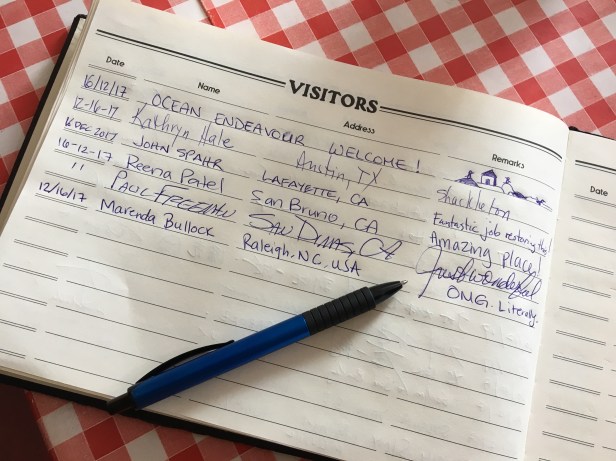 VISITORS
Date Name Address Remarks Date
16/12/17 OCEAN ENDEAVOUR WELCOME!
12-16-17 Kathryn Hale Austin, TX Shackleton
16 DEC 2017 JOHN SPAHR LAFAYETTE, CA Fantastic job restoring this!
16-12-17 Reena Patel San Bruno, CA Amazing place!
" PAUL FREEMAN SAN DIMAS, CA Just wonderful
12/16/17 Marenda Bullock Raleigh, NC, USA OMG. Literally.